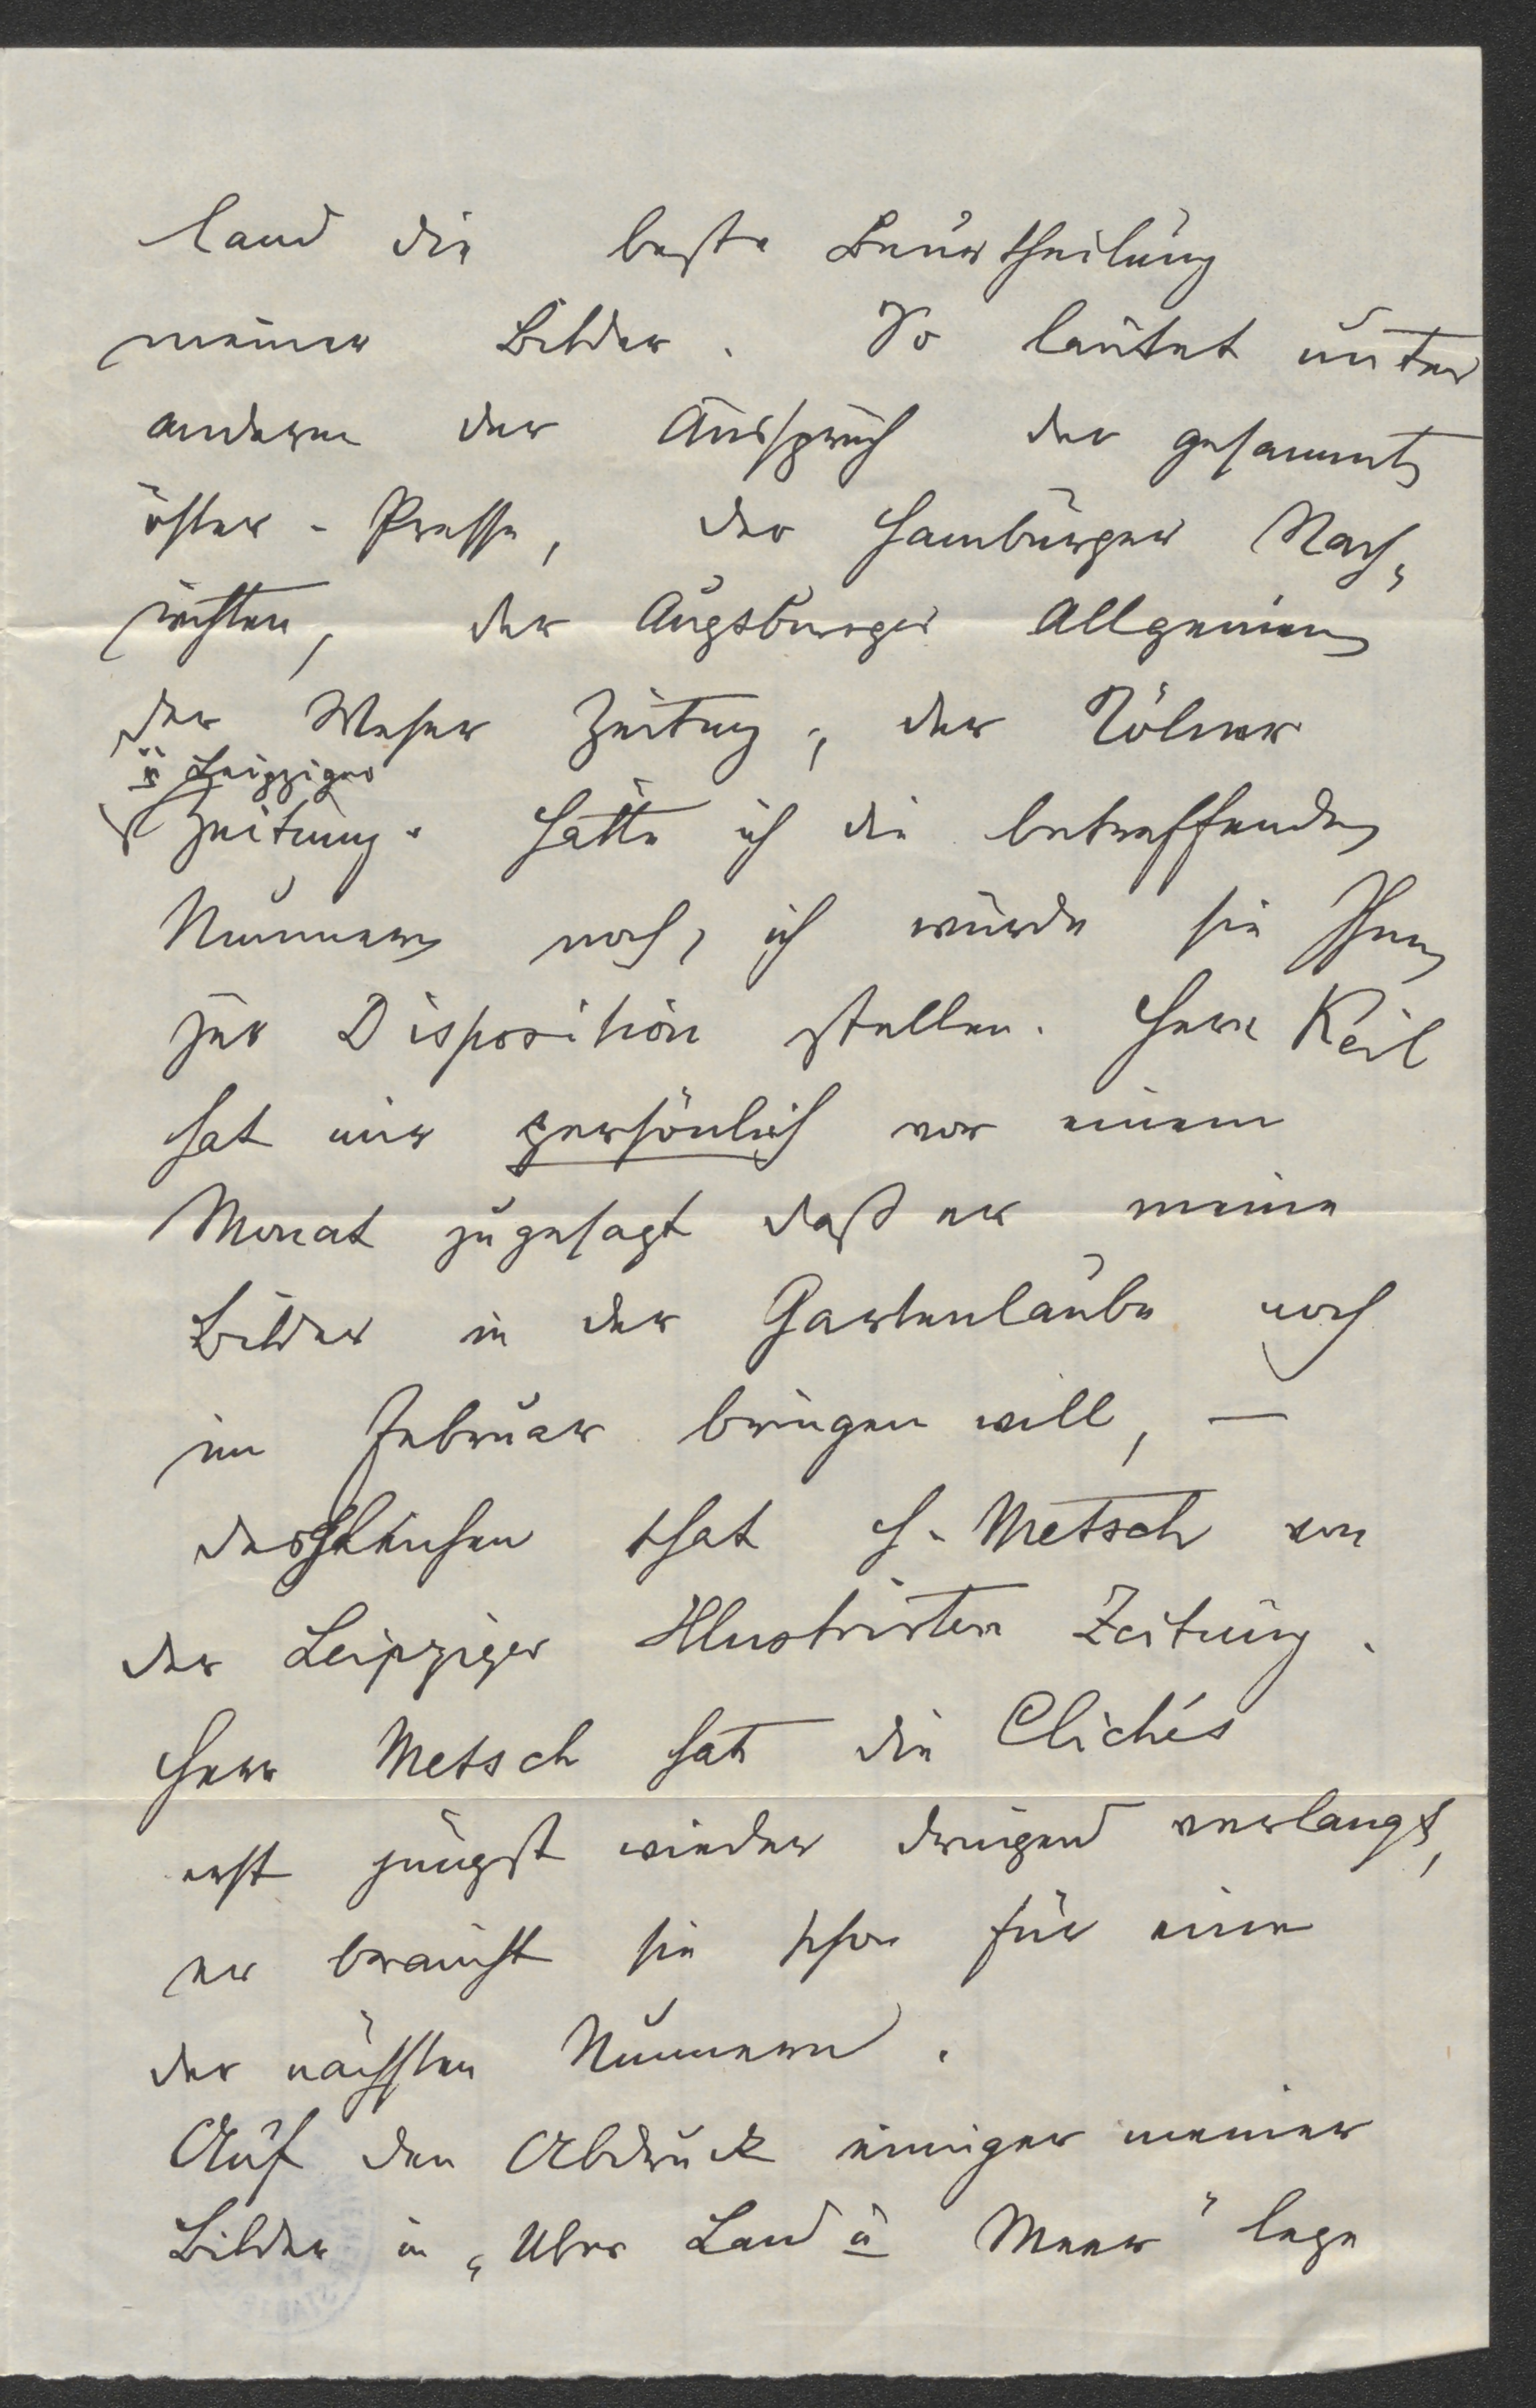 land die beste Beurtheilung
meiner Bilder. So lautet unter
anderem der Ausspruch der gesammten
öster. Presse, der Hamburger Nach-
richten, der Augsburger Allgemeinen
der Weser Zeitung, der Kölner
u Leipziger
Zeitung. Hätte ich die betreffenden
Nummern noch, ich würde sie Ihnen
zur Disposition stellen. Herr Keil
hat mir persönlich vor einem
Monat zugesagt daß er meine
Bilder in der Gartenlaube noch
im Februar bringen will, —
desgleichen that H. Metsch von
der Leipziger Illustrirten Zeitung.
Herr Metsch hat die Clichés
erst jüngst wieder dringend verlangt,
er braucht sie schon für eine
der nächsten Nummern.
Auf den Abdruck einiger meiner
Bilder in „Uber Land u Meer" lege